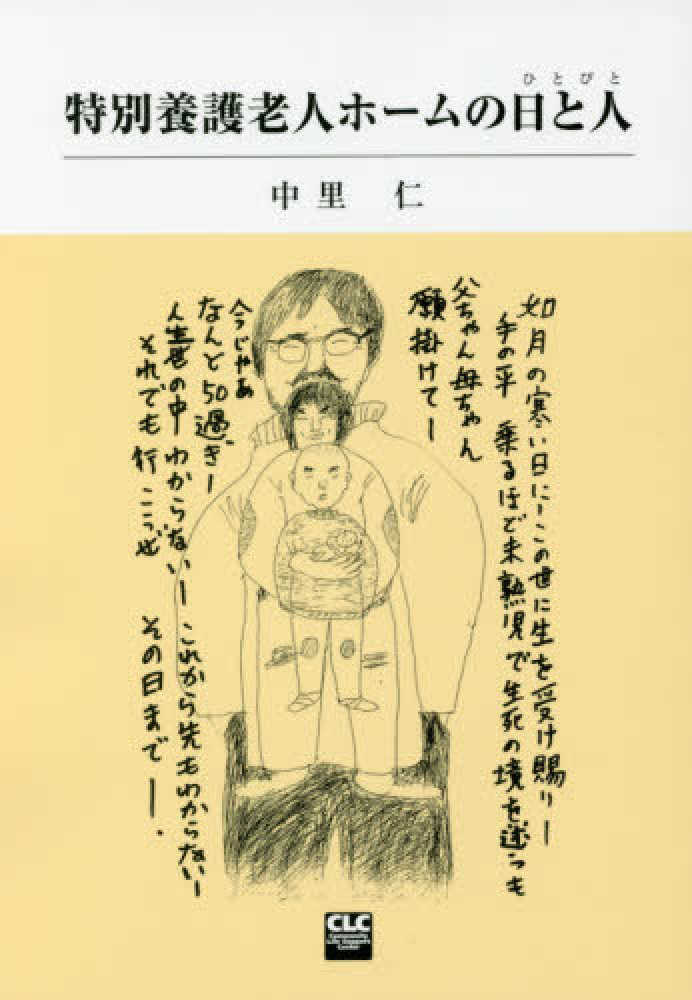 特別養護老人ホームの日と人
ひとびと
中里 仁
如月の寒い日に―この世に生を受け賜り―
手の平 乗るほど未熟児で生死の境を迷つも
父ちゃん母ちゃん
願掛けて―
今じゃあ
なんと50過ぎ―
人生世の中わからない―これから先もわからない―
それでも行こうぜ その日まで―.
CLC
Community
Life Support
Center